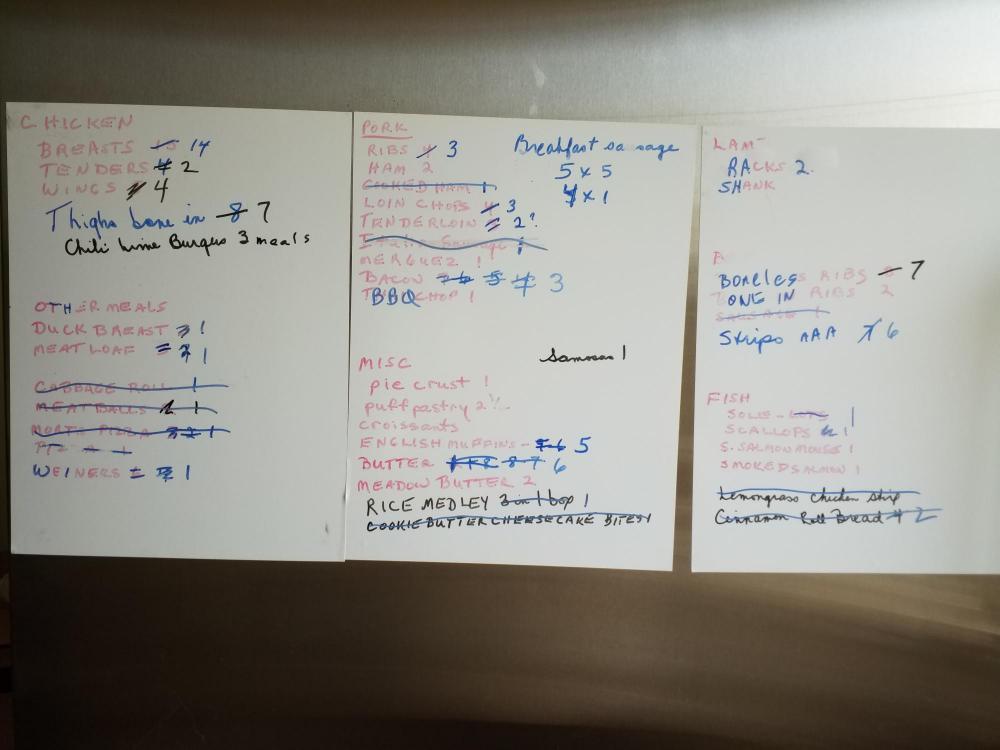 CHICKEN
BREASTS 15 14
TENDERS 4 2
WINGS 4
Thighs bone in 8 7
Chili Lime Burgers 3 meals
OTHER MEALS
DUCK BREAST 1
MEAT LOAF 1
CABBAGE ROLL 1
MEATBALLS 1
MORTS PIZZA 3 2 1
WEINERS 1
PORK
RIBS 4 3
HAM 2
COOKED HAM 1
LOIN CHOPS 4 3
TENDERLOIN 2?
MERGUEZ 1
BACON 5 4 3
BBQ CHOP 1
Breakfast sausage
5 x 5
4 x 1
Samosas 1
MISC
pie crust 1
puff pastry 2 1/2
croissants
ENGLISH MUFFINS - 6 5
BUTTER 8 7 6
MEADOW BUTTER 2
RICE MEDLEY 3 in 1 box 1
COOKIE BUTTER CHEESECAKE BITES 1
LAM
RACKS 2.
SHANK
BONELESS RIBS 7
BONE IN RIBS 2
SAUSAGE 1
Strips AAA 7 6
FISH
SOLE - LOTS 1
SCALLOPS 1
S. SALMON MOUSE 1
SMOKED SALMON 1
Lemongrass Chicken Skip
Cinnamon Roll Bread # 2